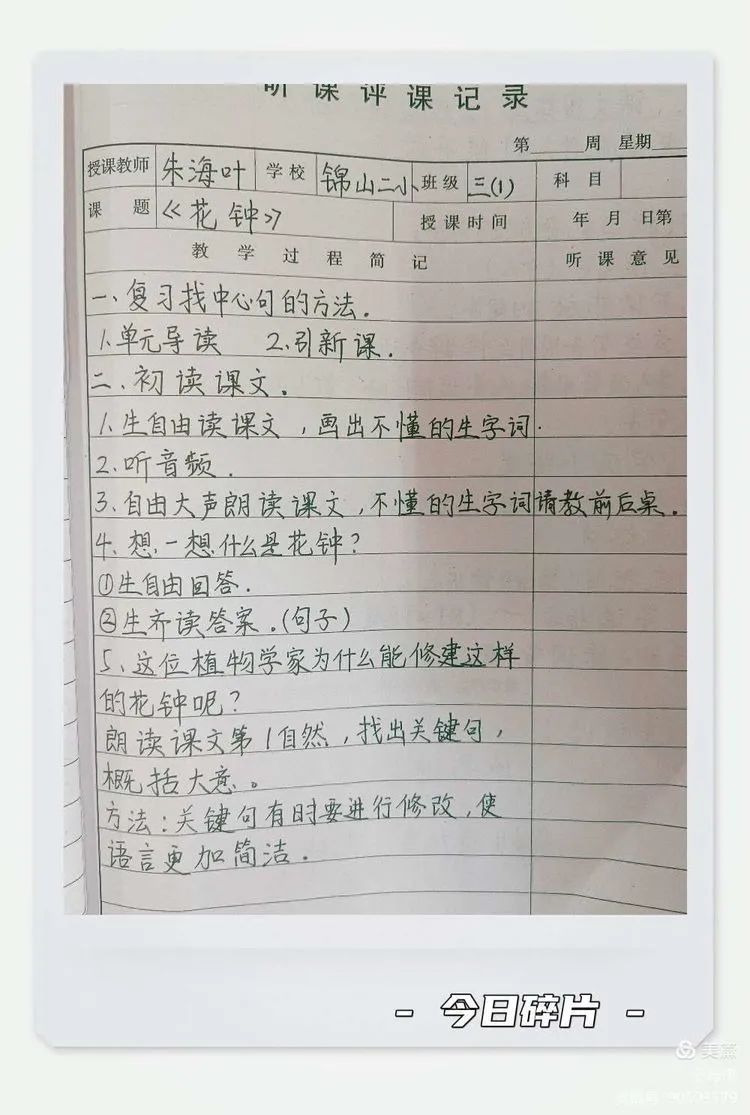 听课评课记录
第 周 星期
授课教师 朱海叶 学校 锦山二小 班级 三(1) 科目
课题 《花钟》 授课时间 年 月 日第
教学过程简记 听课意见
一、复习找中心句的方法.
1.单元导读 2.引新课.
二、初读课文.
1.生自由读课文,画出不懂的生字词.
2.听音频.
3.自由大声朗读课文,不懂的生字词请教前后桌.
4、想一想什么是花钟?
①生自由回答.
②生齐读答案.(句子)
5、这位植物学家为什么能修建这样
的花钟呢?
朗读课文第1自然,找出关键句,
概括大意。
方法:关键句有时要进行修改,使
语言更加简洁.
- 今日碎片 -
美篇